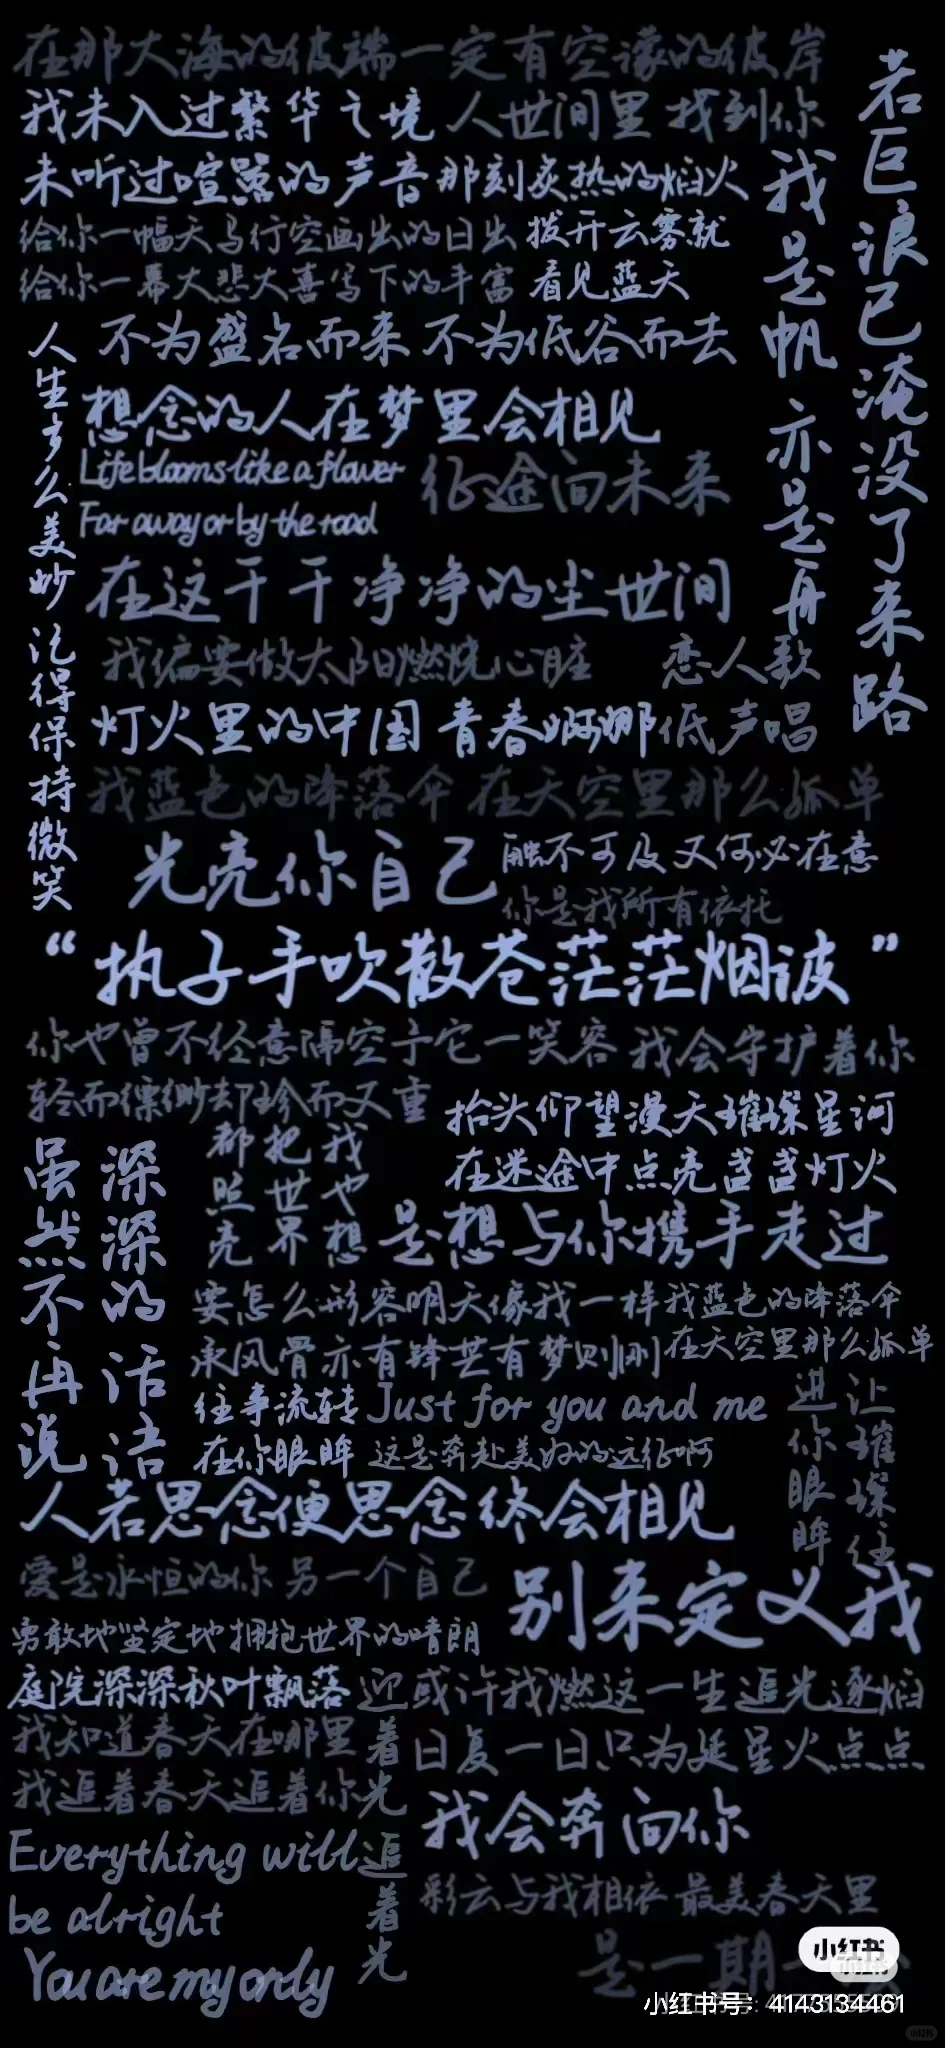 在那大海的彼端一定有空濛的彼岸
我未入过繁华之境
人世间里 找到你
未听过喧嚣的声音
那刻炙热的焰火
给你一幅天马行空画出的日出
拨开云雾就
给你一幕大悲大喜写下的丰富
看见蓝天
若巨浪已淹没了来路
我是帆 亦是舟
不为盛名而来 不为低谷而去
人生多么美妙 记得保持微笑
想念的人在梦里会相见
Life blooms like a flower
Far away or by the road
征途向未来
在这干干净净的尘世间
我偏要做太阳燃烧心脏
恋人歌
灯火里的中国 青春婀娜
低声唱
我蓝色的降落伞 在天空里那么孤单
光亮你自己
触不可及 又何必在意
你是我所有依托
“执子手吹散苍茫茫烟波”
你也曾不经意隔空予它一笑容
我会守护着你
轻而缥缈却珍而又重
抬头仰望漫天璀璨星河
在迷途中点亮盏盏灯火
虽然不再说
深深的话语
我也想
把世界
都照亮
是想与你携手走过
要怎么形容明天像我一样
我蓝色的降落伞
承风骨亦有锋芒有梦则刚
在天空里那么孤单
往事流转
Just for you and me
在你眼眸
这是奔赴美好的远征啊
让璀璨往
进你眼眸
人若思念便思念终会相见
爱是永恒的你 另一个自己
别来定义我
勇敢地坚定地拥抱世界的晴朗
庭院深深秋叶飘落
迎着光追着光
或许我燃这一生追光逐焰
我知道春天在哪里
日复一日只为延星火点点
我追着春天追着你
我会奔向你
Everything will
be alright
彩云与我相依 最美春天里
You are my only
是一期一
小红书
小红书号: 4143134461
小红书